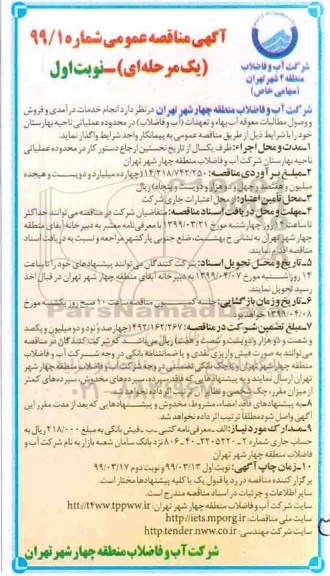 آگهی مناقصه عمومی شماره ۹۹/۱
(یک مرحله‌ای) - نوبت اول
شرکت آب و فاضلاب
منطقه ۴ شهر تهران
(سهامی خاص)
شرکت آب و فاضلاب منطقه چهار شهر تهران در نظر دارد انجام خدمات درآمدی و فروش
و وصول مطالبات معوقه آب بهاء و تعهدات (آب و فاضلاب) در محدوده عملیاتی ناحیه بهارستان
خود را با شرایط ذیل از طریق مناقصه عمومی به پیمانکار واجد شرایط واگذار نماید.
۱- مدت و محل اجراء: ظرف یکسال از تاریخ نخستین ارجاع دستور کار در محدوده عملیاتی
ناحیه بهارستان شرکت آب و فاضلاب منطقه چهار شهر تهران
۲- مبلغ برآوردی مناقصه: ۱۴/۲۱۸/۷۴۲/۲۵۰ (چهارده میلیارد و دویست و هیجده
میلیون و هفتصد و چهل و دو هزار و دویست و پنجاه) ریال
۳- محل تأمین اعتبار: از محل اعتبارات جاری شرکت
۴- مهلت و محل دریافت اسناد مناقصه: متقاضیان شرکت در مناقصه می‌توانند حداکثر
تا ساعت ۱۴ روز چهارشنبه مورخ ۱۳۹۹/۰۳/۲۱ با معرفی‌نامه معتبر به دبیرخانه آبفای منطقه
چهار شهر تهران به نشانی خ بهشتی، ضلع جنوبی پارکشهر مراجعه و نسبت به دریافت اسناد
مناقصه اقدام نمایند.
۵- تاریخ و محل تحویل اسناد: شرکت کنندگان می‌توانند پیشنهادهای خود را تا ساعت
۱۴ روز شنبه مورخ ۱۳۹۹/۰۴/۰۷ به دبیرخانه آبفای منطقه چهار شهر تهران در قبال اخذ
رسید تحویل نمایند.
۶- تاریخ و زمان بازگشایی: جلسه کمیسیون مناقصه ساعت ۱۰ صبح روز یکشنبه مورخ
۱۳۹۹/۰۴/۰۸ خواهد بود.
۷- مبلغ تضمین شرکت در مناقصه: ۴۹۲/۱۶۲/۲۶۷ (چهارصد و نود و دو میلیون و یکصد
و شصت و دو هزار و دویست و شصت و هفت) ریال می‌باشد که شرکت کنندگان در مناقصه
می‌توانند به صورت فیش واریزی نقدی و یا ضمانتنامه بانکی در وجه شرکت آب و فاضلاب
منطقه چهار شهر تهران و یا چک بانکی تضمینی در وجه شرکت آب و فاضلاب منطقه چهار شهر
تهران ارسال نمایند و به پیشنهادهایی که فاقد سپرده، سپرده‌های مخدوش، سپرده‌های کمتر
از میزان مقرر، چک شخصی و نظایر آن ترتیب اثر داده نخواهد شد.
۸- به پیشنهادهای فاقد امضاء، مشروط، مخدوش و پیشنهادهایی که بعد از مدت مقرر این
آگهی واصل شود مطلقا ترتیب اثر داده نخواهد شد.
۹- مدارک مورد نیاز: الف- معرفی‌نامه کتبی ب- فیش بانکی به مبلغ ۲۱۸/۰۰۰ ریال به
حساب جاری شماره ۲-۲۲۰۵۲۲۰-۴۰-۸۰۶ نزد بانک سامان شعبه بازار به نام شرکت آب و
فاضلاب منطقه چهار شهر تهران
۱۰- زمان چاپ آگهی: نوبت اول ۹۹/۰۳/۱۳ و نوبت دوم ۹۹/۰۳/۱۷
برگزار کننده مناقصه در رد یا قبول یک یا کلیه پیشنهادها مختار است.
سایر اطلاعات و جزئیات در اسناد مناقصه مندرج است.
سایت شرکت آب و فاضلاب منطقه چهار شهر تهران: http://t4ww.tpww.ir
سایت ملی مناقصات: http://iets.mporg.ir
سایت شرکت مهندسی آب و فاضلاب کشور: http:tender.nww.co.ir
شرکت آب و فاضلاب منطقه چهار شهر تهران